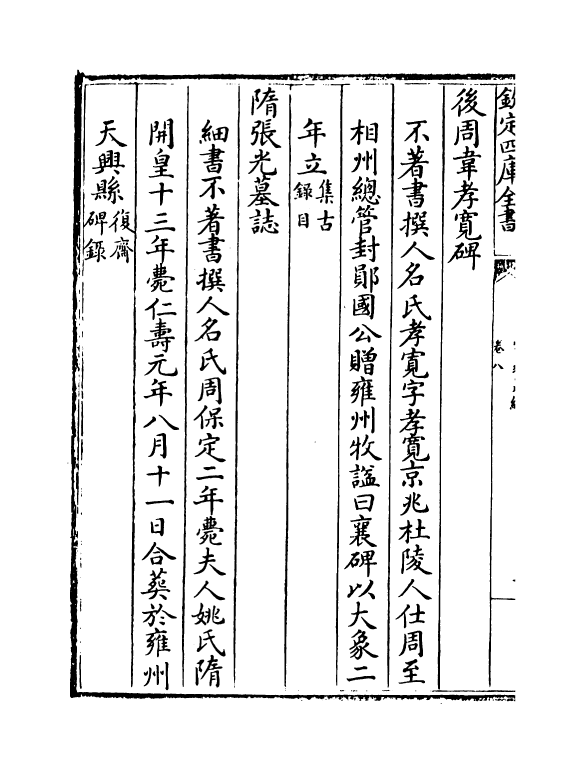 欽定四庫全書
卷八
後周韋孝寛碑
不著書撰人名氏孝寛字孝寛京兆杜陵人仕周至
相州總管封鄖國公贈雍州牧諡曰襄碑以大象二
年立集古錄目
隋張光墓誌
細書不著書撰人名氏周保定二年薨夫人姚氏隋
開皇十三年薨仁壽元年八月十一日合葬於雍州
天興縣復齋碑錄